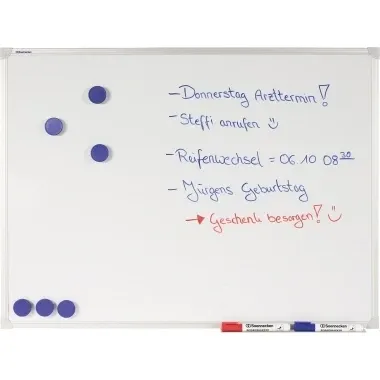 Soennecken
– Donnerstag Arzttermin!
– Steffi anrufen ☺
– Reifenwechsel = 06.10 08³⁰
– Jürgens Geburtstag
→ Geschenk besorgen! ☺
Soennecken Soennecken